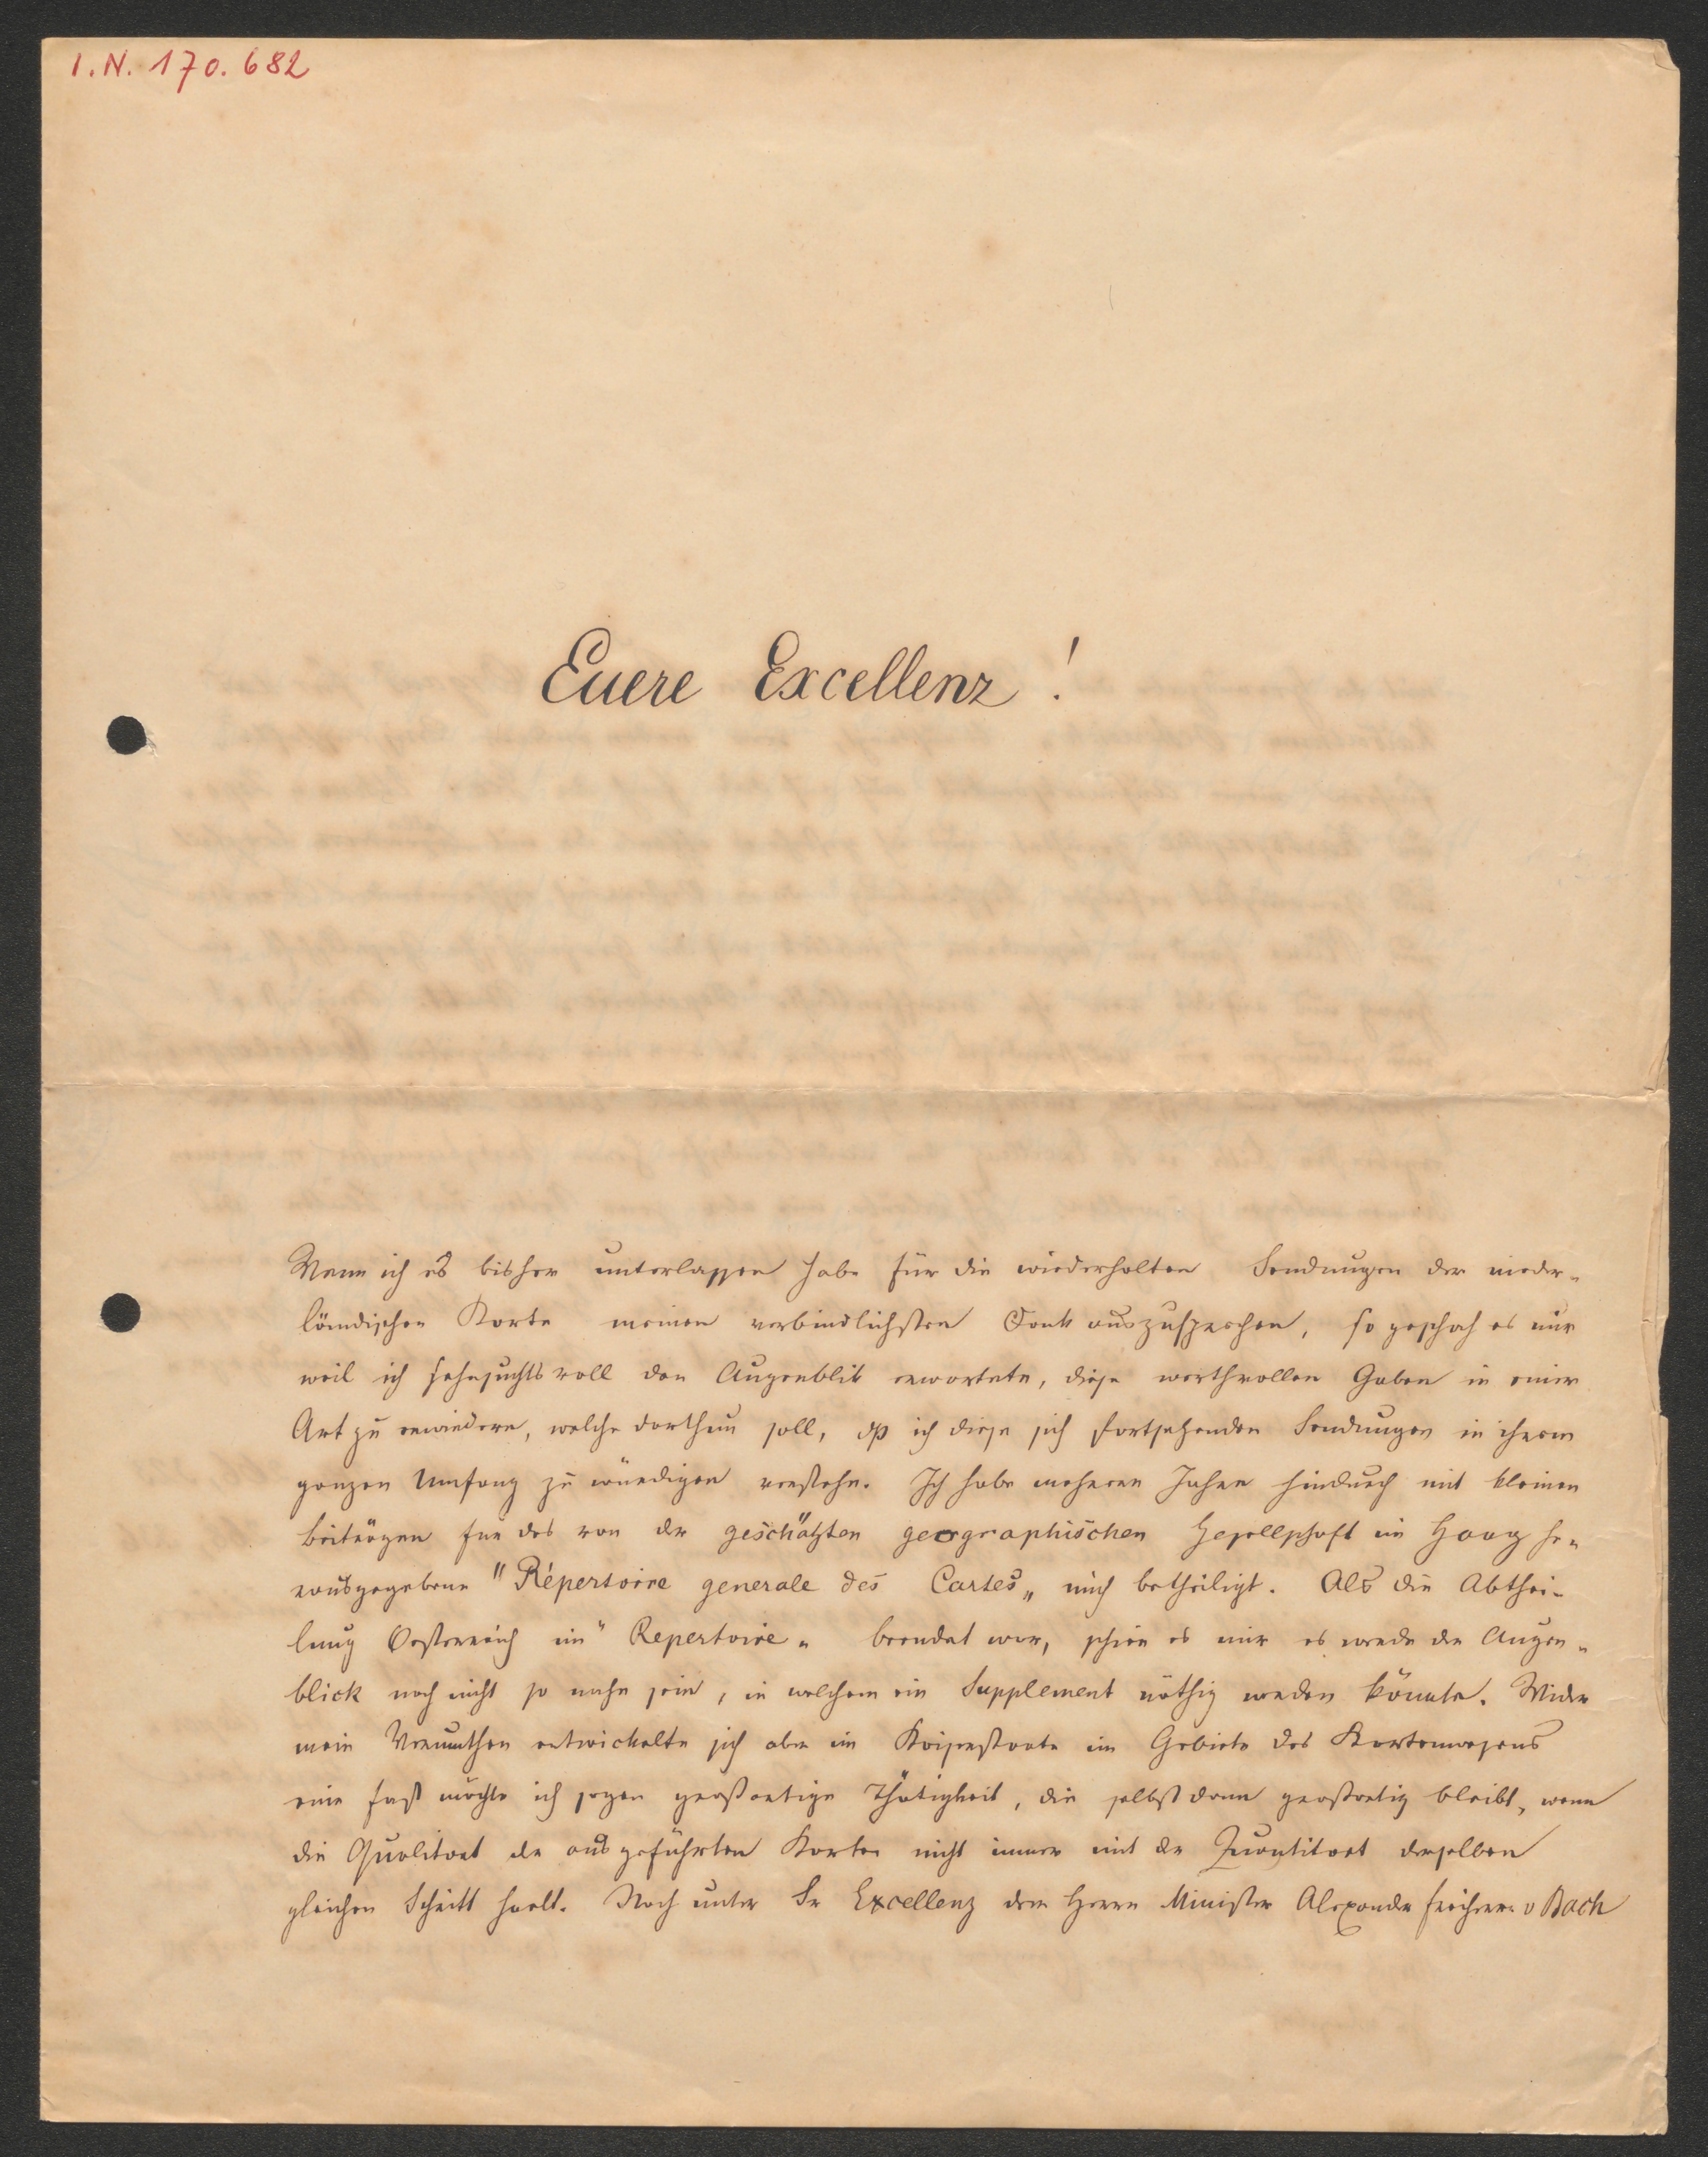 I.N. 170.682
Euere Excellenz!
Wenn ich es bisher unterlassen habe für die wiederholten Sendungen der nieder-
ländischen Karte meinen verbindlichsten Dank auszusprechen, so geschah es nur
weil ich sehnsuchtsvoll den Augenblik erwartete, diese werthvollen Gaben in einer
Art zu erwiedern, welche darthun soll, dß ich diese sich fortsetzenden Sendungen in ihrem
ganzen Umfang zu würdigen verstehe. Ich habe mehrere Jahre hindurch mit kleinen
Beiträgen für das von der geschätzten geographischen Gesellschaft im Haag he-
rausgegebene "Répertoire generale des Cartes„ mich betheiligt. Als die Abthei-
lung Oesterreich im "Repertoire„ beendet war, schien es mir es werde der Augen-
blick noch nicht so nahe sein, in welchem ein Supplement nöthig werden könnte. Wider
mein Vermuthen entwickelte sich aber im Kaiserstaate im Gebiete des Kartenwesens
eine fast möchte ich sagen großartige Thätigkeit, die selbst dann großartig bleibt, wenn
die Qualitaet der ausgeführten Karten nicht immer mit der Quantitaet derselben
gleichen Schritt haelt. Noch unter Sr Excellenz dem Herrn Minister Alexander Freiherrn v Bach